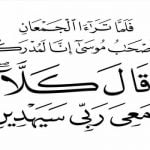 فَلَمَّا تَرَٰٓءَا ٱلْجَمْعَانِ
صْحَٰبُ مُوسَىٰٓ إِنَّا لَمُدْرَكُ
قَالَ كَلَّآ
مَعِىَ رَبِّى سَيَهْدِينِ